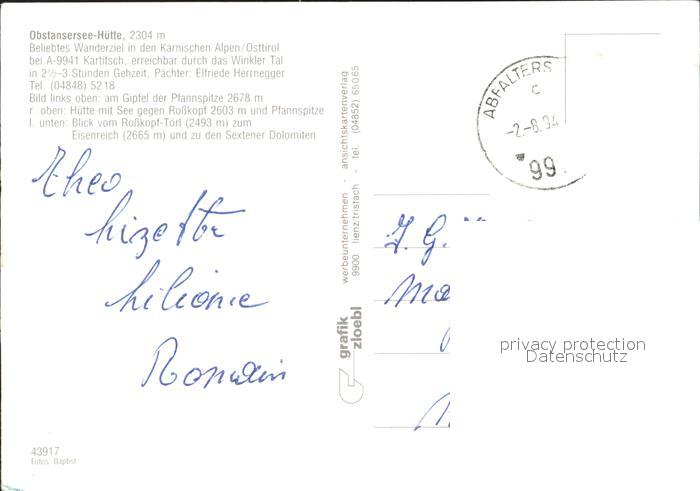 Obstansersee-Hütte, 2304 m
Beliebtes Wanderziel in den Karnischen Alpen/Osttirol
bei A-9941 Kartitsch, erreichbar durch das Winkler Tal
in 2½–3 Stunden Gehzeit, Pächter: Elfriede Herrnegger
Tel. (04848) 5218
Bild links oben: am Gipfel der Pfannspitze 2678 m
r. oben: Hütte mit See gegen Roßkopf 2603 m und Pfannspitze
l. unten: Blick vom Roßkopf-Törl (2493 m) zum
Eisenreich (2665 m) und zu den Sextener Dolomiten
Theo
Lizette
Liliane
Romain
43917
Fotos: Baptist
werbeunternehmen · ansichtskartenverlag
9900 lienz/tristach · tel. (04852) 65065
grafik
zloebl
ABFALTERS
c
-2.-8.94
99
J. G.
Ma
privacy protection
Datenschutz